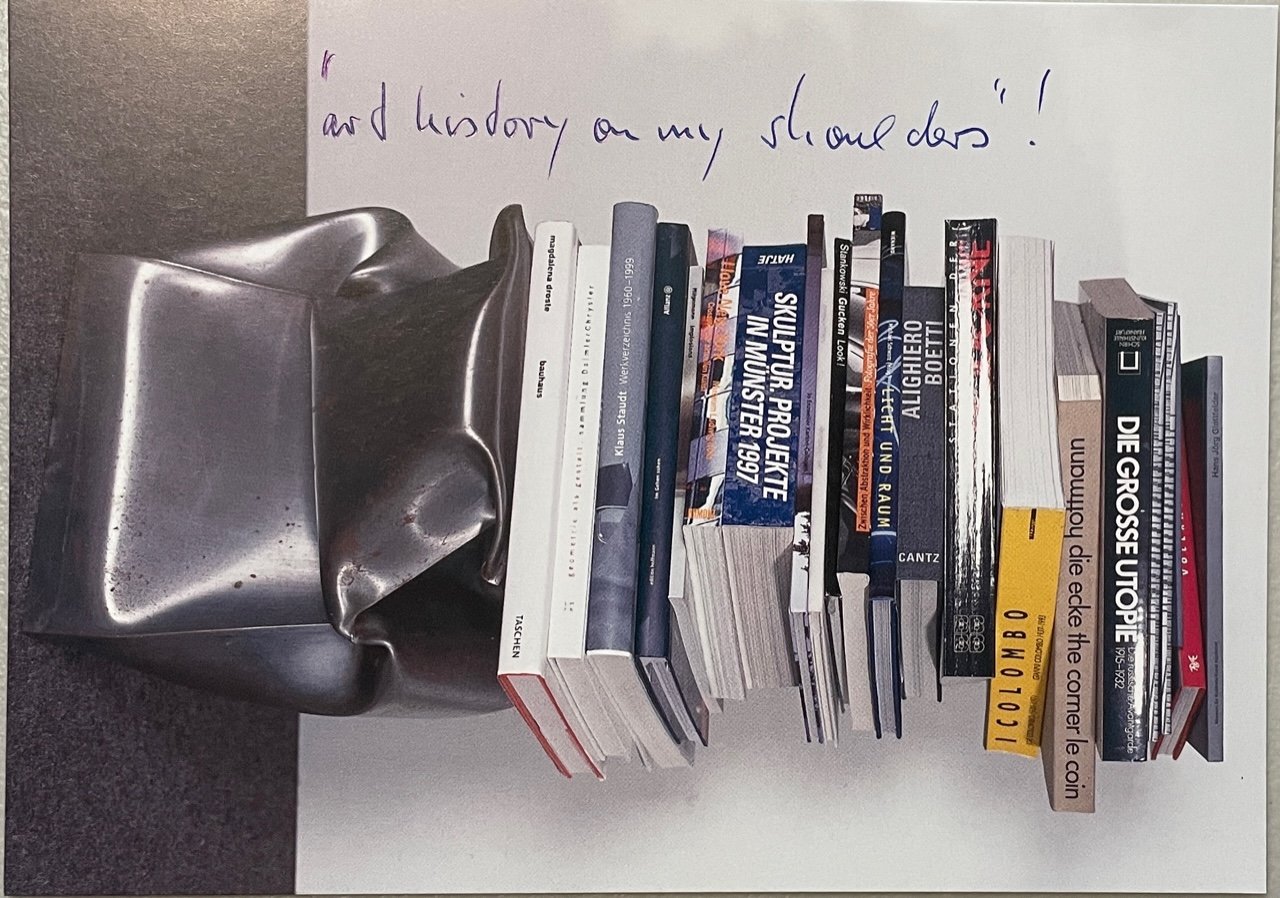 "art history on my shoulders"!
magdalena droste bauhaus TASCHEN
geometrie als gestalt. sammlung DaimlerChrysler
Klaus Staudt Werkverzeichnis 1960–1999
Allianz
HATJE
SKULPTUR. PROJEKTE
IN MÜNSTER 1997
Stankowski Gucken Look!
Zwischen Abstraktion und Wirklichkeit:
WIENAND
LICHT UND RAUM
ALIGHIERO
BOETTI
CANTZ
STATIONEN DER
MODERNE
I COLOMBO
hofmann die ecke the corner le coin
SCHIRN
KUNSTHALLE
FRANKFURT
DIE GROSSE UTOPIE
Die russische Avantgarde
1915–1932
Hans Jörg Glattfelder